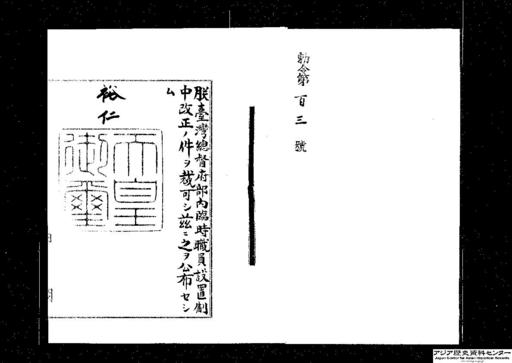 勅令第百三號
朕臺灣總督府部內臨時職員設置制
中改正ノ件ヲ裁可シ茲ニ之ヲ公布セシ
ム
裕仁
天皇
御璽
アジア歴史資料センター
Japan Center for Asian Historical Records